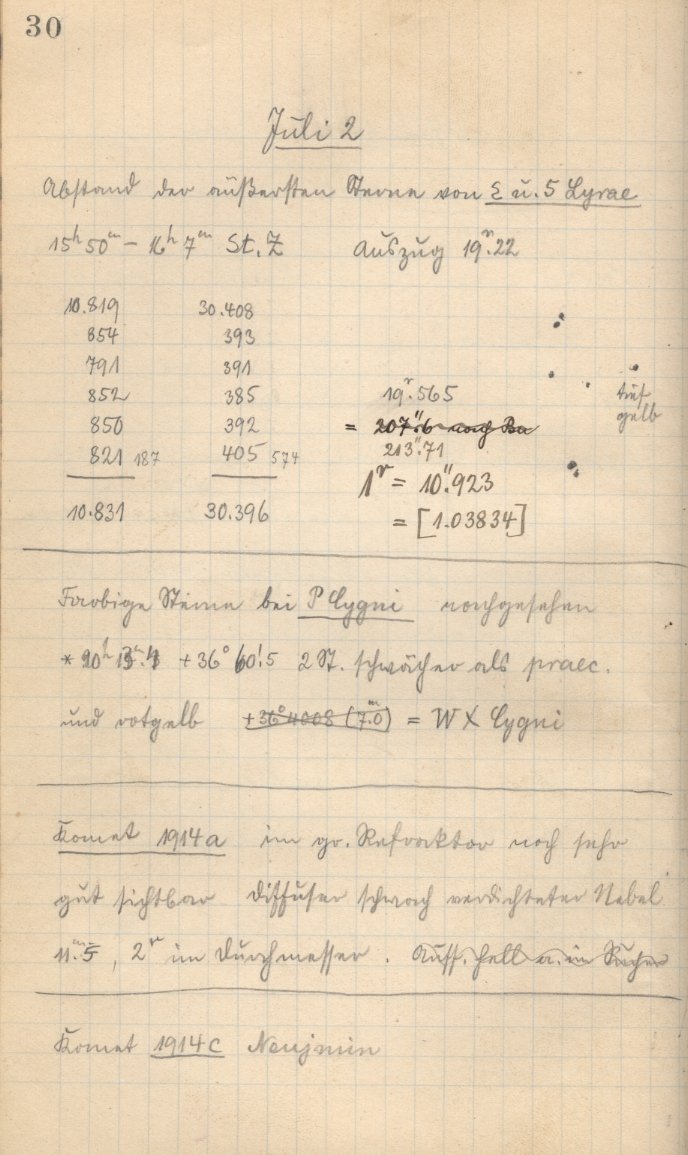 30
Juli 2
Abstand der äußersten Sterne von ε u. 5 Lyrae
15ʰ 50ᵐ – 16ʰ 7ᵐ St. Z Auszug 19ʳ.22
10.819 30.408
854 393
791 391
852 385 19ʳ.565 tief
850 392 = 207".6 nach gelb
821 187 405 574 213".71
1ʳ = 10".923
10.831 30.396 = [1.03834]
Farbige Sterne bei P Cygni nachgesehen
* 20ʰ +36° 2 St. schwächer als praec.
und rotgelb +36°4008 (7.0ᵐ) = W X Cygni
Komet 1914a im gr. Refraktor noch sehr
gut sichtbar diffuser schwach verdichteter Nebel
11ᵐ.5, 2ʳ im Durchmesser. hell im Sucher
Komet 1914c Neujmin